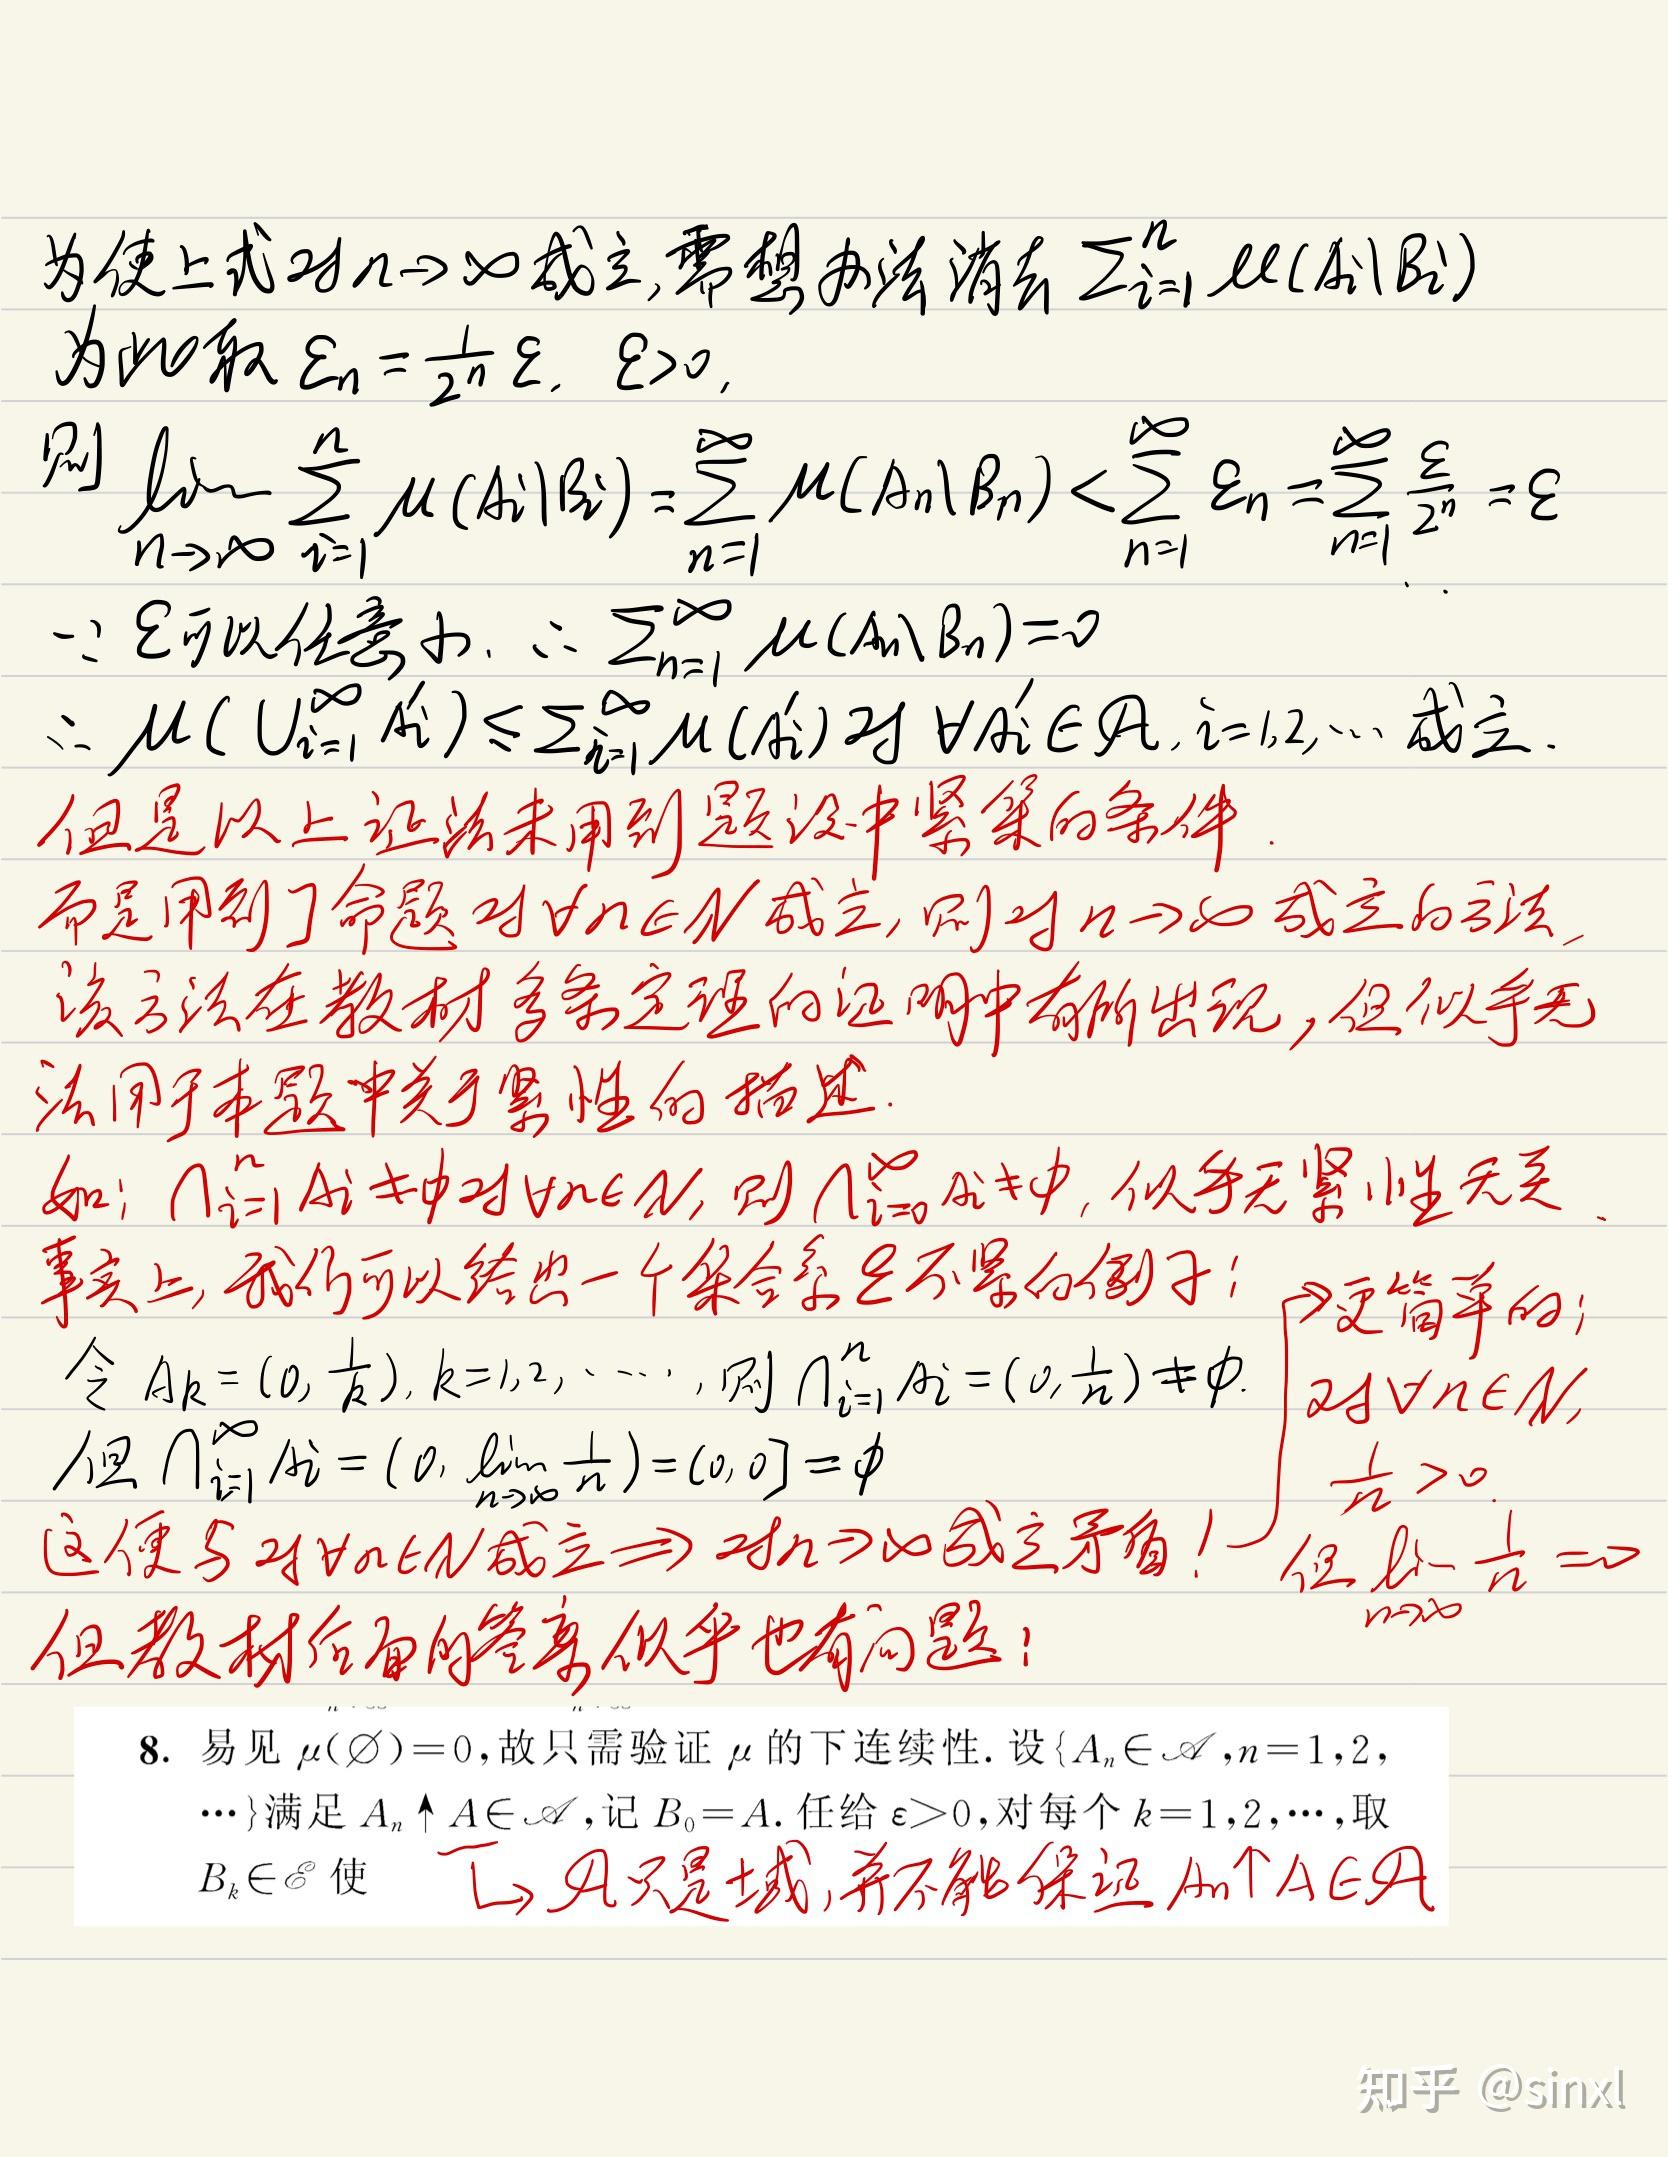 为使上式对n→∞成立,需想办法消去 ∑ⁿᵢ₌₁ μ(Aᵢ\Bᵢ)
为此取 εₙ = 1/2ⁿ ε. ε>0,
则 lim_{n→∞} ∑_{i=1}^{n} μ(Aᵢ\Bᵢ) = ∑_{n=1}^{∞} μ(Aₙ\Bₙ) < ∑_{n=1}^{∞} εₙ = ∑_{n=1}^{∞} ε/2ⁿ = ε
∵ ε可以任意小. ∴ ∑_{n=1}^{∞} μ(Aₙ\Bₙ)=0
∴ μ(∪_{i=1}^{∞} Aᵢ') ≤ ∑_{i=1}^{∞} μ(Aᵢ') 对 ∀Aᵢ'∈𝒜, i=1,2,… 成立.
但是以上证法未用到题设中紧集的条件.
而是用到了命题对∀n∈N成立,则对n→∞成立的方法,
该方法在教材多条定理的证明中有所出现,但似乎无
法用于本题中关于紧性的描述.
如: ∩_{i=1}^{n} Aᵢ≠φ对∀n∈N, 则∩_{i=0}^{∞} Aᵢ≠φ, 似乎无紧性无关.
事实上,我们可以给出一个集合系ℰ不紧的例子:
令 Aₖ=(0, 1/k), k=1,2,……, 则∩_{i=1}^{n} Aᵢ=(0, 1/n)≠φ.
但 ∩_{i=1}^{∞} Aᵢ = (0, lim_{n→∞} 1/n) = (0,0] = φ
这便与对∀n∈N成立⇒对n→∞成立矛盾!
→更简单的:
对∀n∈N,
1/n >0.
但 lim_{n→∞} 1/n =0
但教材后面的答案似乎也有问题:
8. 易见 μ(∅)=0,故只需验证 μ 的下连续性. 设{Aₙ∈𝒜,n=1,2,
…}满足 Aₙ↑A∈𝒜,记 B₀=A. 任给 ε>0,对每个 k=1,2,…,取
Bₖ∈ℰ 使
↳ 𝒜只是域,并不能保证 Aₙ↑A∈𝒜
知乎 @sinxl